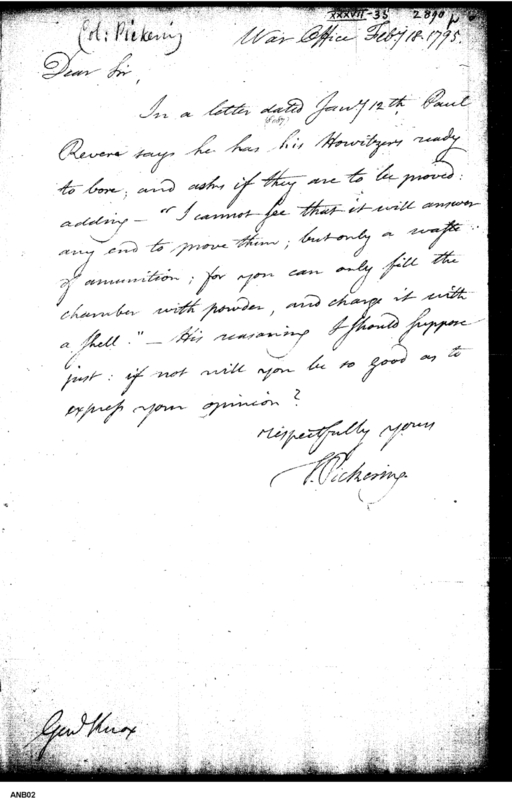 XXXVII-35 2890
Col: Pickering
War Office Feby 18. 1795.
Dear Sir,
In a letter dated Jany 12th, Paul
(Feby)
Revere says he has his Howitzers ready
to bore; and asks if they are to be proved:
adding — "I cannot see that it will answer
any end to prove them; but only a waste
of amunition; for you can only fill the
chamber with powder, and charge it with
a shell." — His reasoning I should suppose
just: if not will you be so good as to
express your opinion?
respectfully yours
T. Pickering
Genl Knox
ANB02